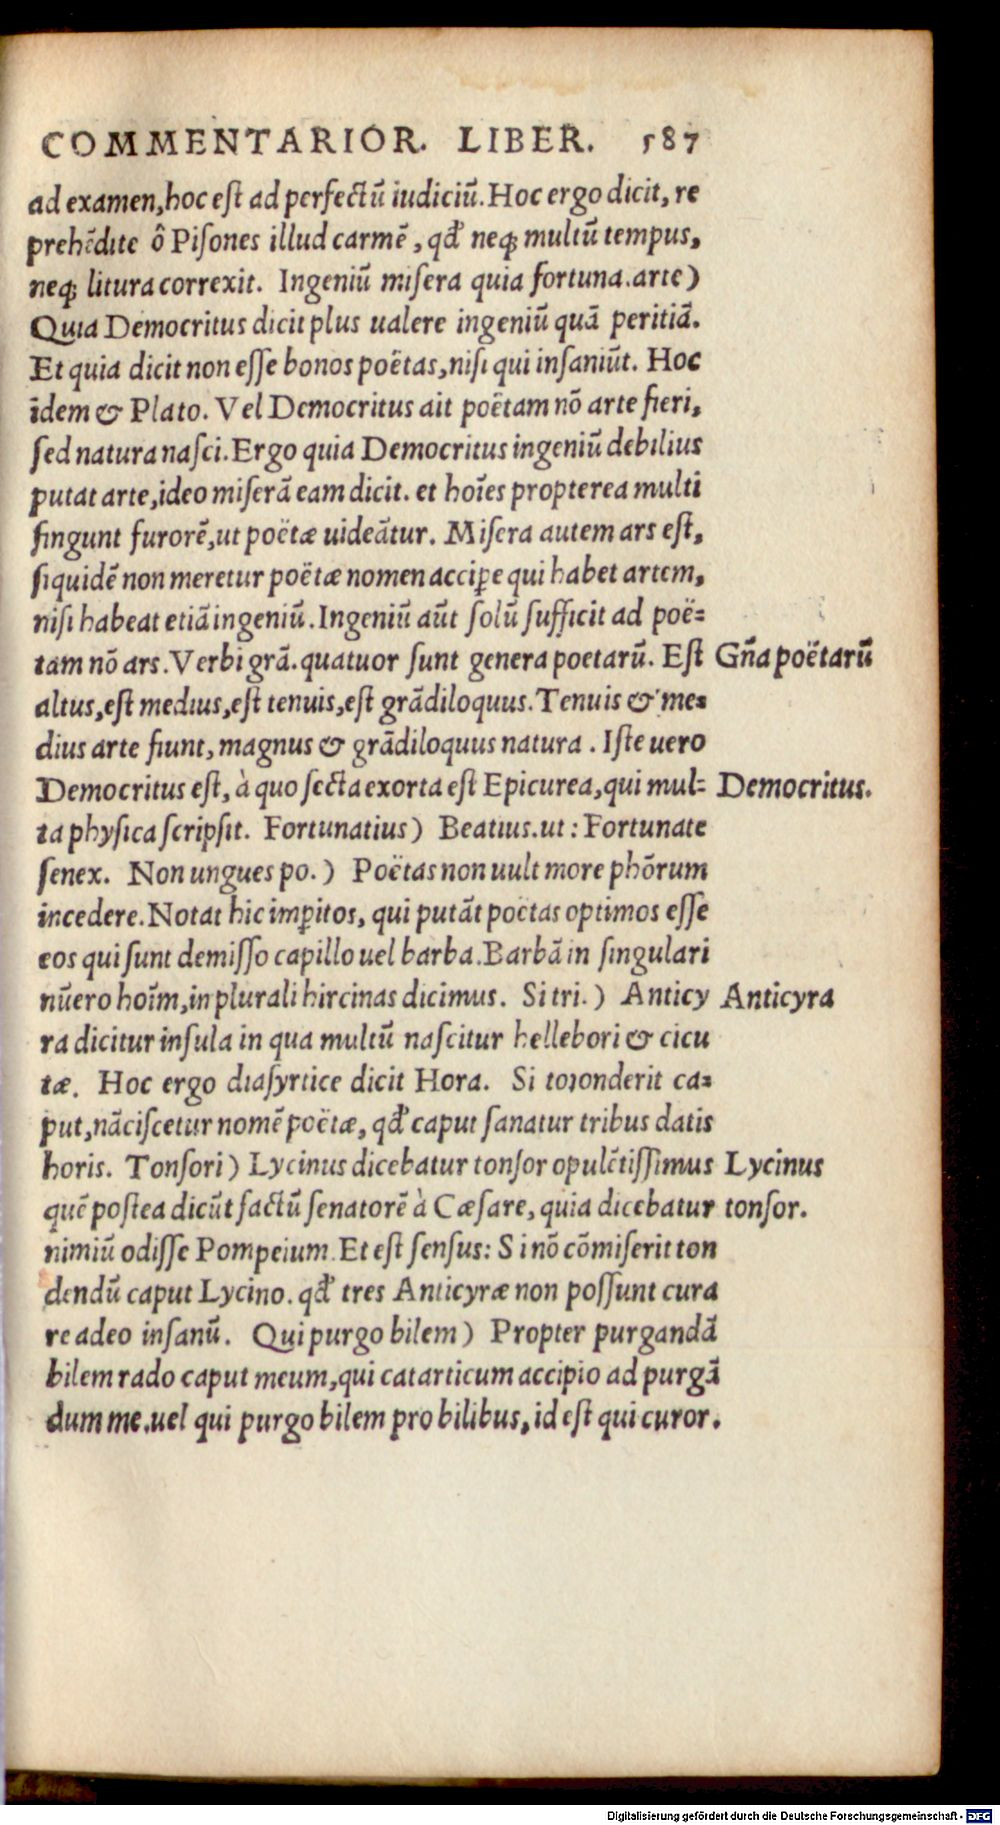 COMMENTARIOR. LIBER. 587
ad examen, hoc eſt ad perfectū iudiciū. Hoc ergo dicit, re
prehēdite ô Piſones illud carmē, qđ neq; multū tempus,
neq; litura correxit. Ingeniū miſera quia fortuna. arte)
Quia Democritus dicit plus ualere ingeniū quā peritiā.
Et quia dicit non eſſe bonos poëtas, niſi qui inſaniūt. Hoc
īdem & Plato. Vel Democritus ait poëtam nō arte fieri,
ſed natura naſci. Ergo quia Democritus ingeniū debilius
putat arte, ideo miſerā eam dicit. et hoīes propterea multi
fingunt furorē, ut poëtæ uideātur. Miſera autem ars eſt,
ſiquidē non meretur poëtæ nomen accip̱e qui habet artem,
niſi habeat etiā ingeniū. Ingeniū aūt ſolū ſufficit ad poë=
tam nō ars. Verbi grā. quatuor ſunt genera poetarū. Eſt Gn̄a poëtarū
altus, eſt medius, eſt tenuis, eſt grādiloquus. Tenuis & me=
dius arte fiunt, magnus & grādiloquus natura. Iſte uero
Democritus eſt, à quo ſecta exorta eſt Epicurea, qui mul= Democritus.
ta phyſica ſcripſit. Fortunatius) Beatius. ut: Fortunate
ſenex. Non ungues po.) Poëtas non uult more phōrum
incedere. Notat hic imp̱itos, qui putāt poëtas optimos eſſe
eos qui ſunt demiſſo capillo uel barba. Barbā in ſingulari
nūero hoīm, in plurali hircinas dicimus. Si tri.) Anticy Anticyra
ra dicitur inſula in qua multū naſcitur hellebori & cicu
tæ. Hoc ergo diaſyrtice dicit Hora. Si totonderit ca=
put, nāciſcetur nomē poëtæ, qđ caput ſanatur tribus datis
horis. Tonſori) Lycinus dicebatur tonſor opulētiſſimus Lycinus
quē poſtea dicūt factū ſenatorē à Cæſare, quia dicebatur tonſor.
nimiū odiſſe Pompeium. Et eſt ſenſus: Si nō cōmiſerit ton
dendū caput Lycino. qđ tres Anticyræ non poſſunt cura
re adeo inſanū. Qui purgo bilem) Propter purgandā
bilem rado caput meum, qui catarticum accipio ad purgā
dum me. uel qui purgo bilem pro bilibus, id eſt qui curor.
Digitalisierung gefördert durch die Deutsche Forschungsgemeinschaft - DFG